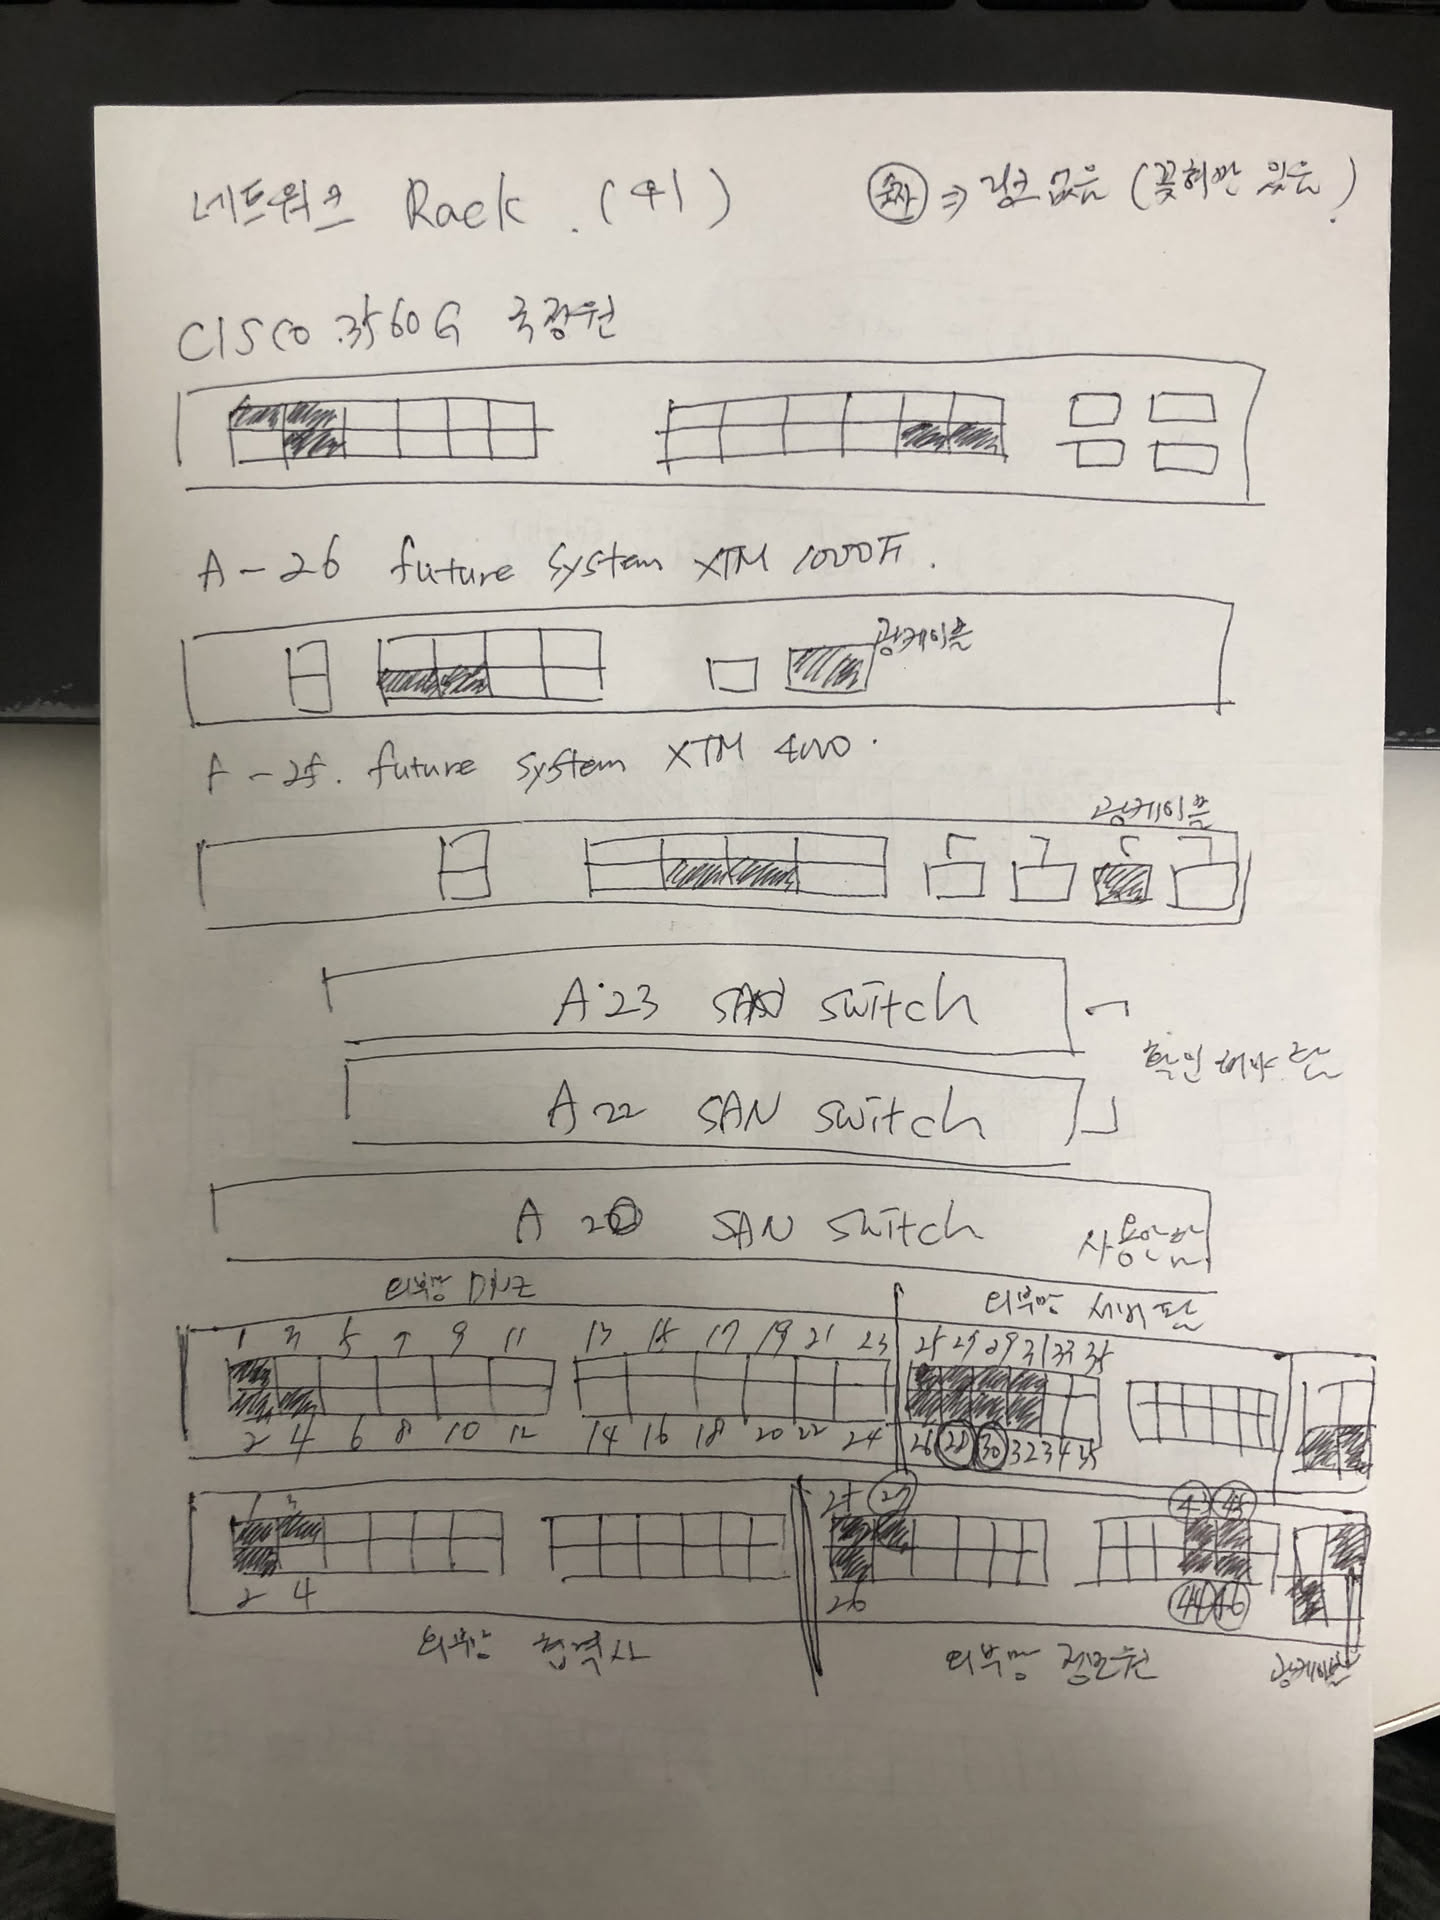 네트워크 Rack. (41)
숫자 ⇒ 링크 없음 (꽂혀만 있음)
CISCO 3560G 국정원
A-26 future system XTM 1000
광케이블
A-25. future system XTM 4000.
광케이블
A·23 SAN switch
확인해야 함
A22 SAN switch
A 20 SAN switch 사용안함
외부망 DMZ 외부망 서버팜
1 3 5 7 9 11 13 15 17 19 21 23 25 27 29 31 33 35
2 4 6 8 10 12 14 16 18 20 22 24 26 28 30 32 34 35
1 3 25 27 43 45
2 4 26 44 46
외부망 협력사 외부망 정보원 광케이블